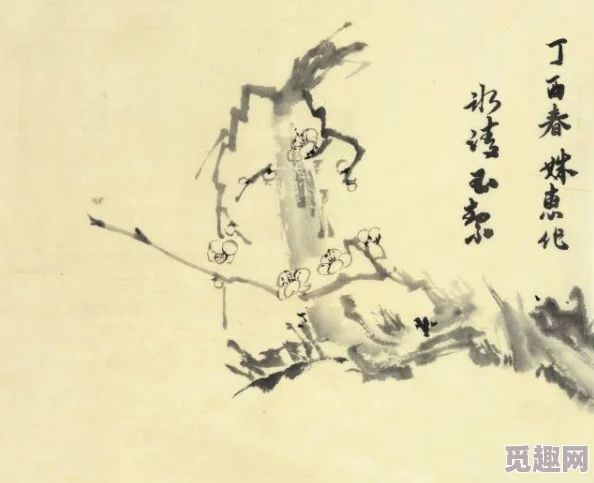 丁酉春 姝惠作
冰清玉絜
觅趣网